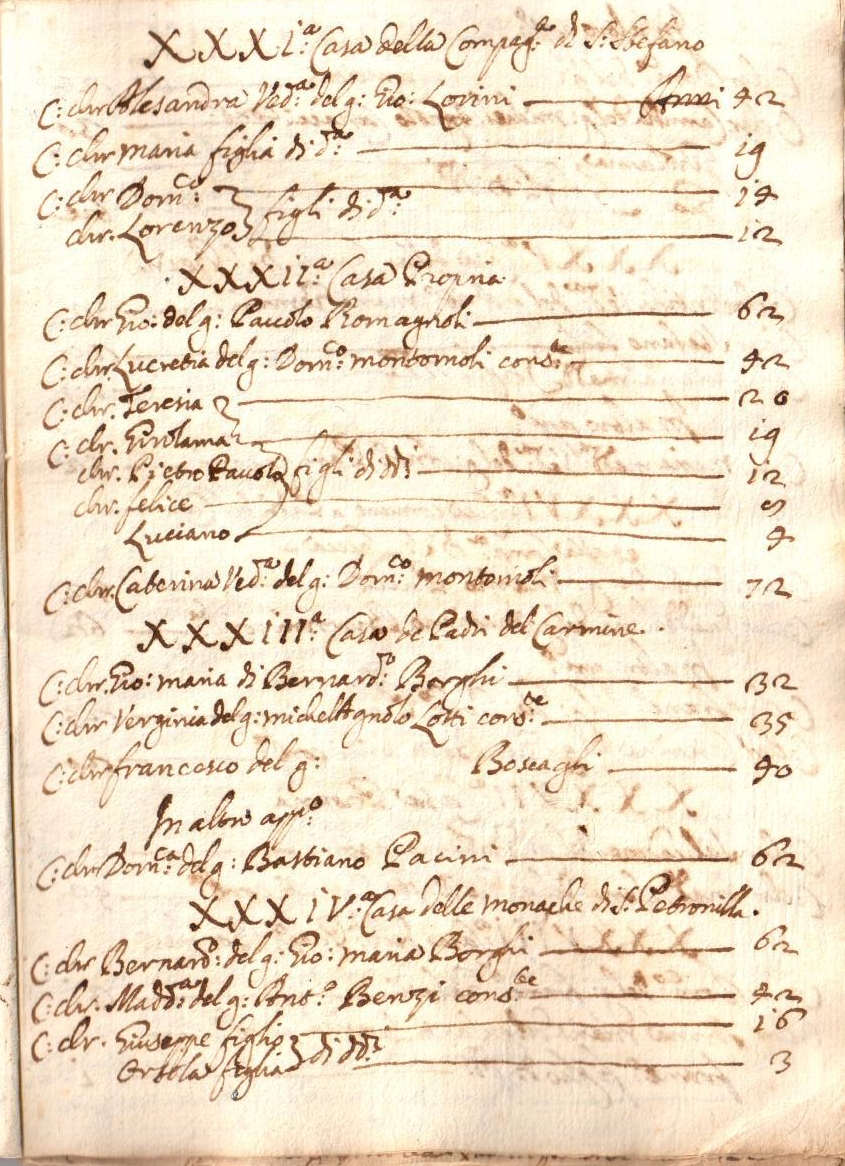 XXXI.ª Casa della Compag.ª di S: Stefano
C: chr Alesandra Ved.ª del q: Gio: Lorini Anni 42
C: chr maria figlia di d.ª 19
C: chr Dom.co 14
chr. Lorenzo figli di d.ª 12
XXXII.ª Casa Propria
C: chr Gio: del q: Pauolo Romagnoli 62
C: chr Lucretia del q: Dom.co montornoli cons.te 42
C: chr. Teresia 20
C: chr. Girolama 19
chr. Pietro Pauolo figli di dd.i 12
chr. felice 9
Luciano 4
C: chr. Caterina Ved.ª del q: Dom.co montornoli 72
XXXIII.ª Casa de Padri del Carmine
C: chr. Gio: maria di Bernard.o Borghi 32
C: chr Verginia del q: michel Agnolo Lotti cons.te 35
C: chr francesco del q: Boscagli 40
In altro app.o
C: chr Dom.ca del q: Bastiano Pacini 62
XXXIV.ª Casa delle monache di S: Petronilla.
C: chr Bernard.o: del q: Gio: maria Borghi 62
C: chr. Madd.a del q: Ant.o Benzi cons.te 42
C: chr. Giuseppe figlio 16
Orsola figlia di dd.i 3